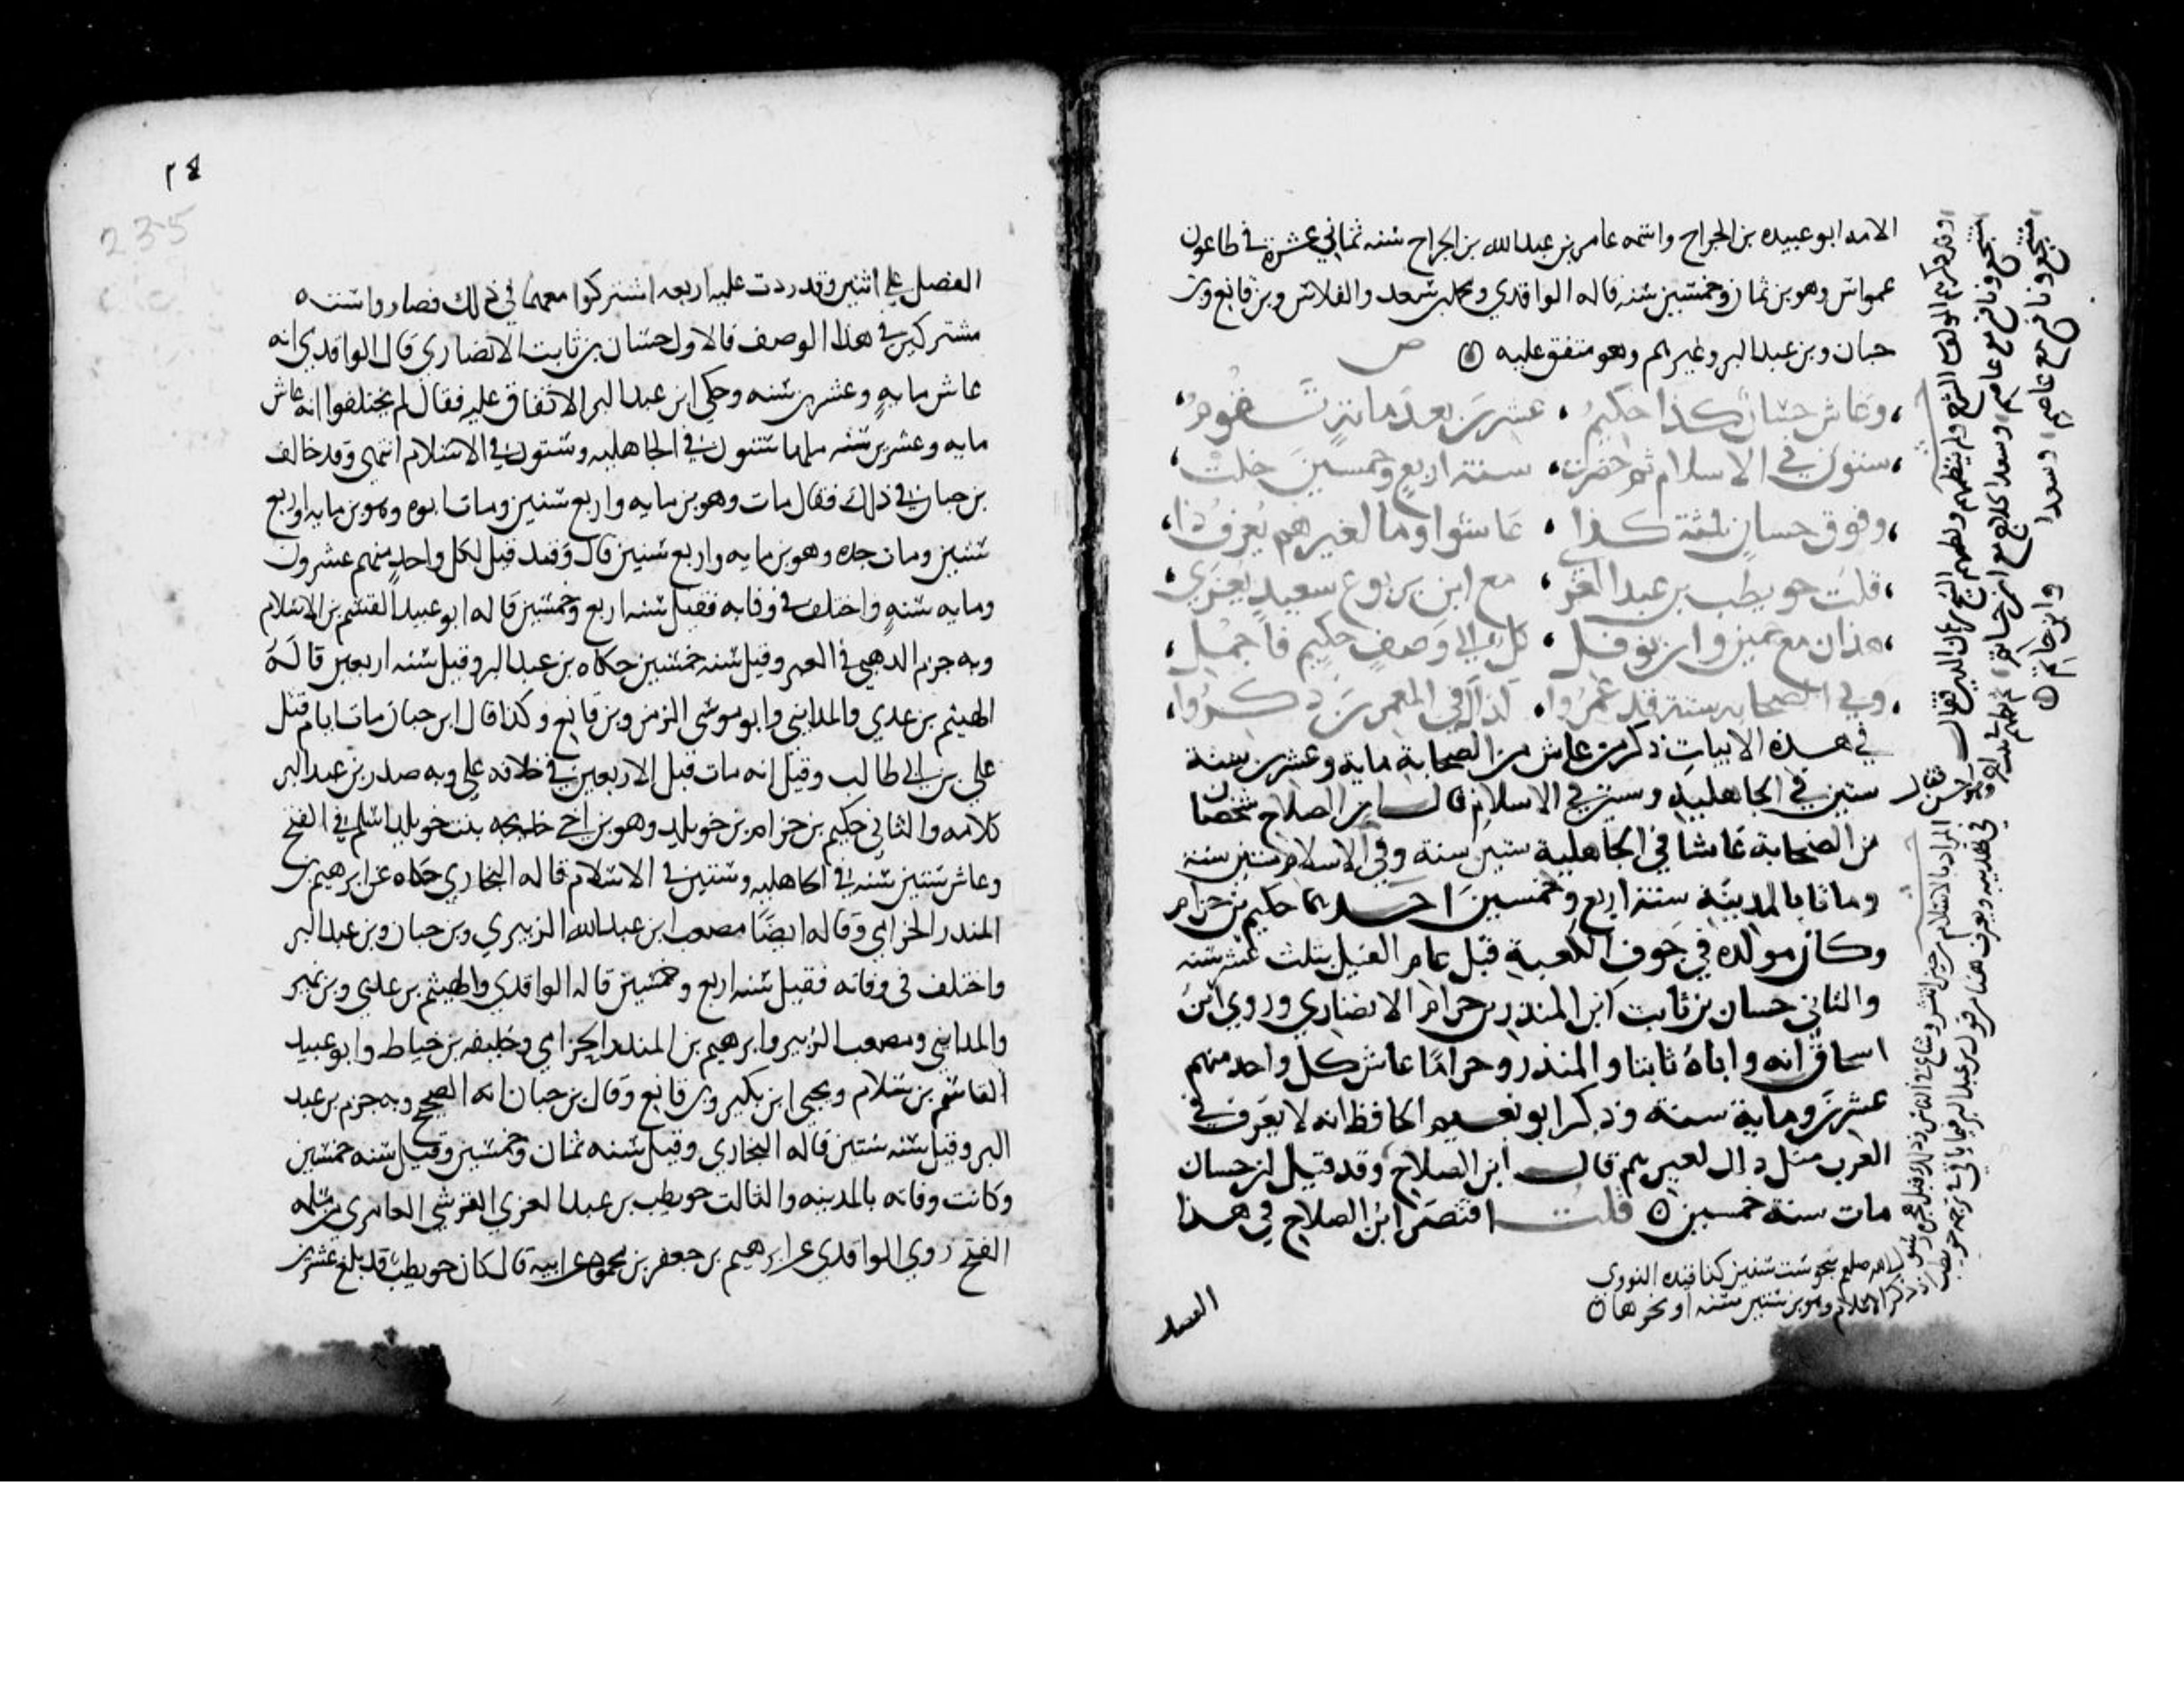 الامه ابو عبيده بن الجراح واسمه عامر بن عبد الله بن الجراح سنه ثماني عشرة في طاعون
عمواس وهو بن ثمان وخمسين سنه قاله الواقدي ومحمد بن سعد والفلاس وبن قانع وبن
حبان وبن عبد البر وغيرهم وهو متفق عليه
ص
وعاش حسان كذا حكيم عشرين بعد مائة تقوم
ستون في الاسلام ثم حضرت سنة اربع وخمسين خلت
وفوق حسان ثلثة كذا عاشوا وما لغيرهم يعرف ذا
قلت حويطب بن عبد العزى مع ابن يربوع سعيد يعزى
هذان مع حمنن وابن نوفل كل الى وصف حكيم فاجمل
وفي الصحاب ستة قد عمروا كذاك في المعمرين ذكروا
في هذه الابيات ذكر من عاش من الصحابة ماية وعشرين سنة
ستين في الجاهلية وستين في الاسلام قال ابن الصلاح شخصان
من الصحابة عاشا في الجاهلية ستين سنة وفي الاسلام ستين سنة
وماتا بالمدينة سنة اربع وخمسين احدهما حكيم بن حزام
وكان مولده في جوف الكعبة قبل عام الفيل بثلث عشرة سنه
والثاني حسان بن ثابت ابن المنذر بن حرام الانصاري وروي ابن
اسحاق انه واباه ثابتا والمنذر وحراما عاش كل واحد منهم
عشرين وماية سنة وذكر ابو نعيم الحافظ انه لا يعرف في
العرب مثل ذلك لغيرهم قال ابن الصلاح وقد قيل ان حسان
مات سنة خمسين قلت اقتصر ابن الصلاح في هذا
الفصل
منتجع ونافع مع عاصم وسعدا
وابن حاتم
منتجع ونافع مع عاصم وسعد
فقال
المراد بالاسلام من حين انتشر وشاع في الناس وذلك قبل
صلعم بنحو ست سنين كذا قيده النووي
الاسلام وهو بن ستين سنه او نحوها
٢٤
235
الفصل علي اثنين وقد زدت عليه اربعه اشتركوا معهما في ذلك فصاروا سته
مشتركين في هذا الوصف فالاول حسان بن ثابت الانصاري قال الواقدي انه
عاش مايه وعشرين سنه وحكي ابن عبد البر الاتفاق عليه فقال لم يختلفوا انه عاش
مايه وعشرين سنه منها ستون في الجاهليه وستون في الاسلام انتهى وقد خالف
بن حبان في ذلك فقال مات وهو بن مايه واربع سنين ومات ابوه وهو بن مايه واربع
سنين ومات جده وهو بن مايه واربع سنين قال وقد قيل لكل واحد منهم عشرون
ومايه سنه واختلف في وفاته فقيل سنه اربع وخمسين قاله ابو عبيد القسم بن الاسلام
وبه جزم الذهبي في العبر وقيل سنه خمسين حكاه بن عبد البر وقيل سنه اربعين قاله
الهيثم بن عدي والمدايني وابو موسى الزمن وبن قانع وكذا قال ابن حبان مات ايام قتل
علي بن ابي طالب وقيل انه مات قبل الاربعين في خلافه علي وبه صدر بن عبد البر
كلامه والثاني حكيم بن حزام بن خويلد وهو بن اخي خديجه بنت خويلد اسلم في الفتح
وعاش ستين سنه في الجاهليه وستين في الاسلام قاله البخاري حكاه عن ابرهيم بن
المنذر الحزامي وقاله ايضا مصعب ابن عبد الله الزبيري وبن حبان وبن عبد البر
واختلف في وفاته فقيل سنه اربع وخمسين قاله الواقدي والهيثم بن عدي وبن نمير
والمدايني ومصعب الزبير وابرهيم بن المنذر الحزامي وخليفه بن خياط وابو عبيد
القاسم بن سلام ويحيى ابن بكير وبن قانع وقال بن حبان انه الصحيح وبه جزم بن عبد
البر وقيل سنه ستين قاله البخاري وقيل سنه ثمان وخمسين وقيل سنه خمسين
وكانت وفاته بالمدينه والثالث حويطب بن عبد العزي القرشي العامري من مسلمه
الفتح روي الواقدي عن ابرهيم بن جعفر بن محمود عن ابيه قال كان حويطب قد بلغ عشرين